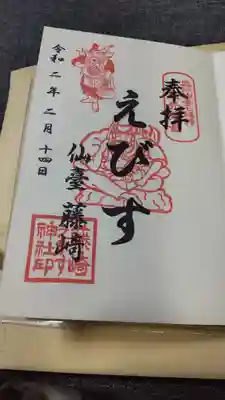 奉拝
えびす
仙臺 藤崎
令和二年二月十四日
藤崎
神社印